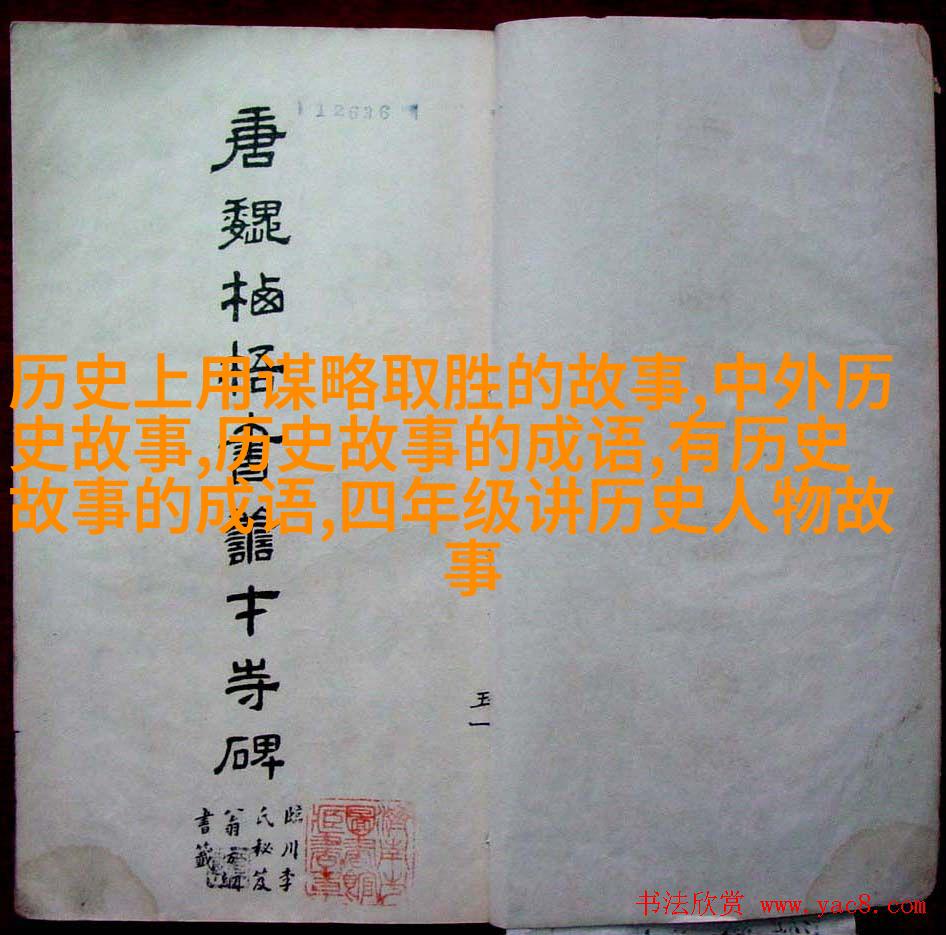 12636
唐魏栖梧書譱才寺碑
臨川李
氏秘笈
翁方綱
書籤
濟南市
圖書館
藏書章
历史上用谋略取胜的故事,中外历
史故事,历史故事的成语,有历史
故事的成语,四年级讲历史人物故
事
书法欣赏 www.yac8.com